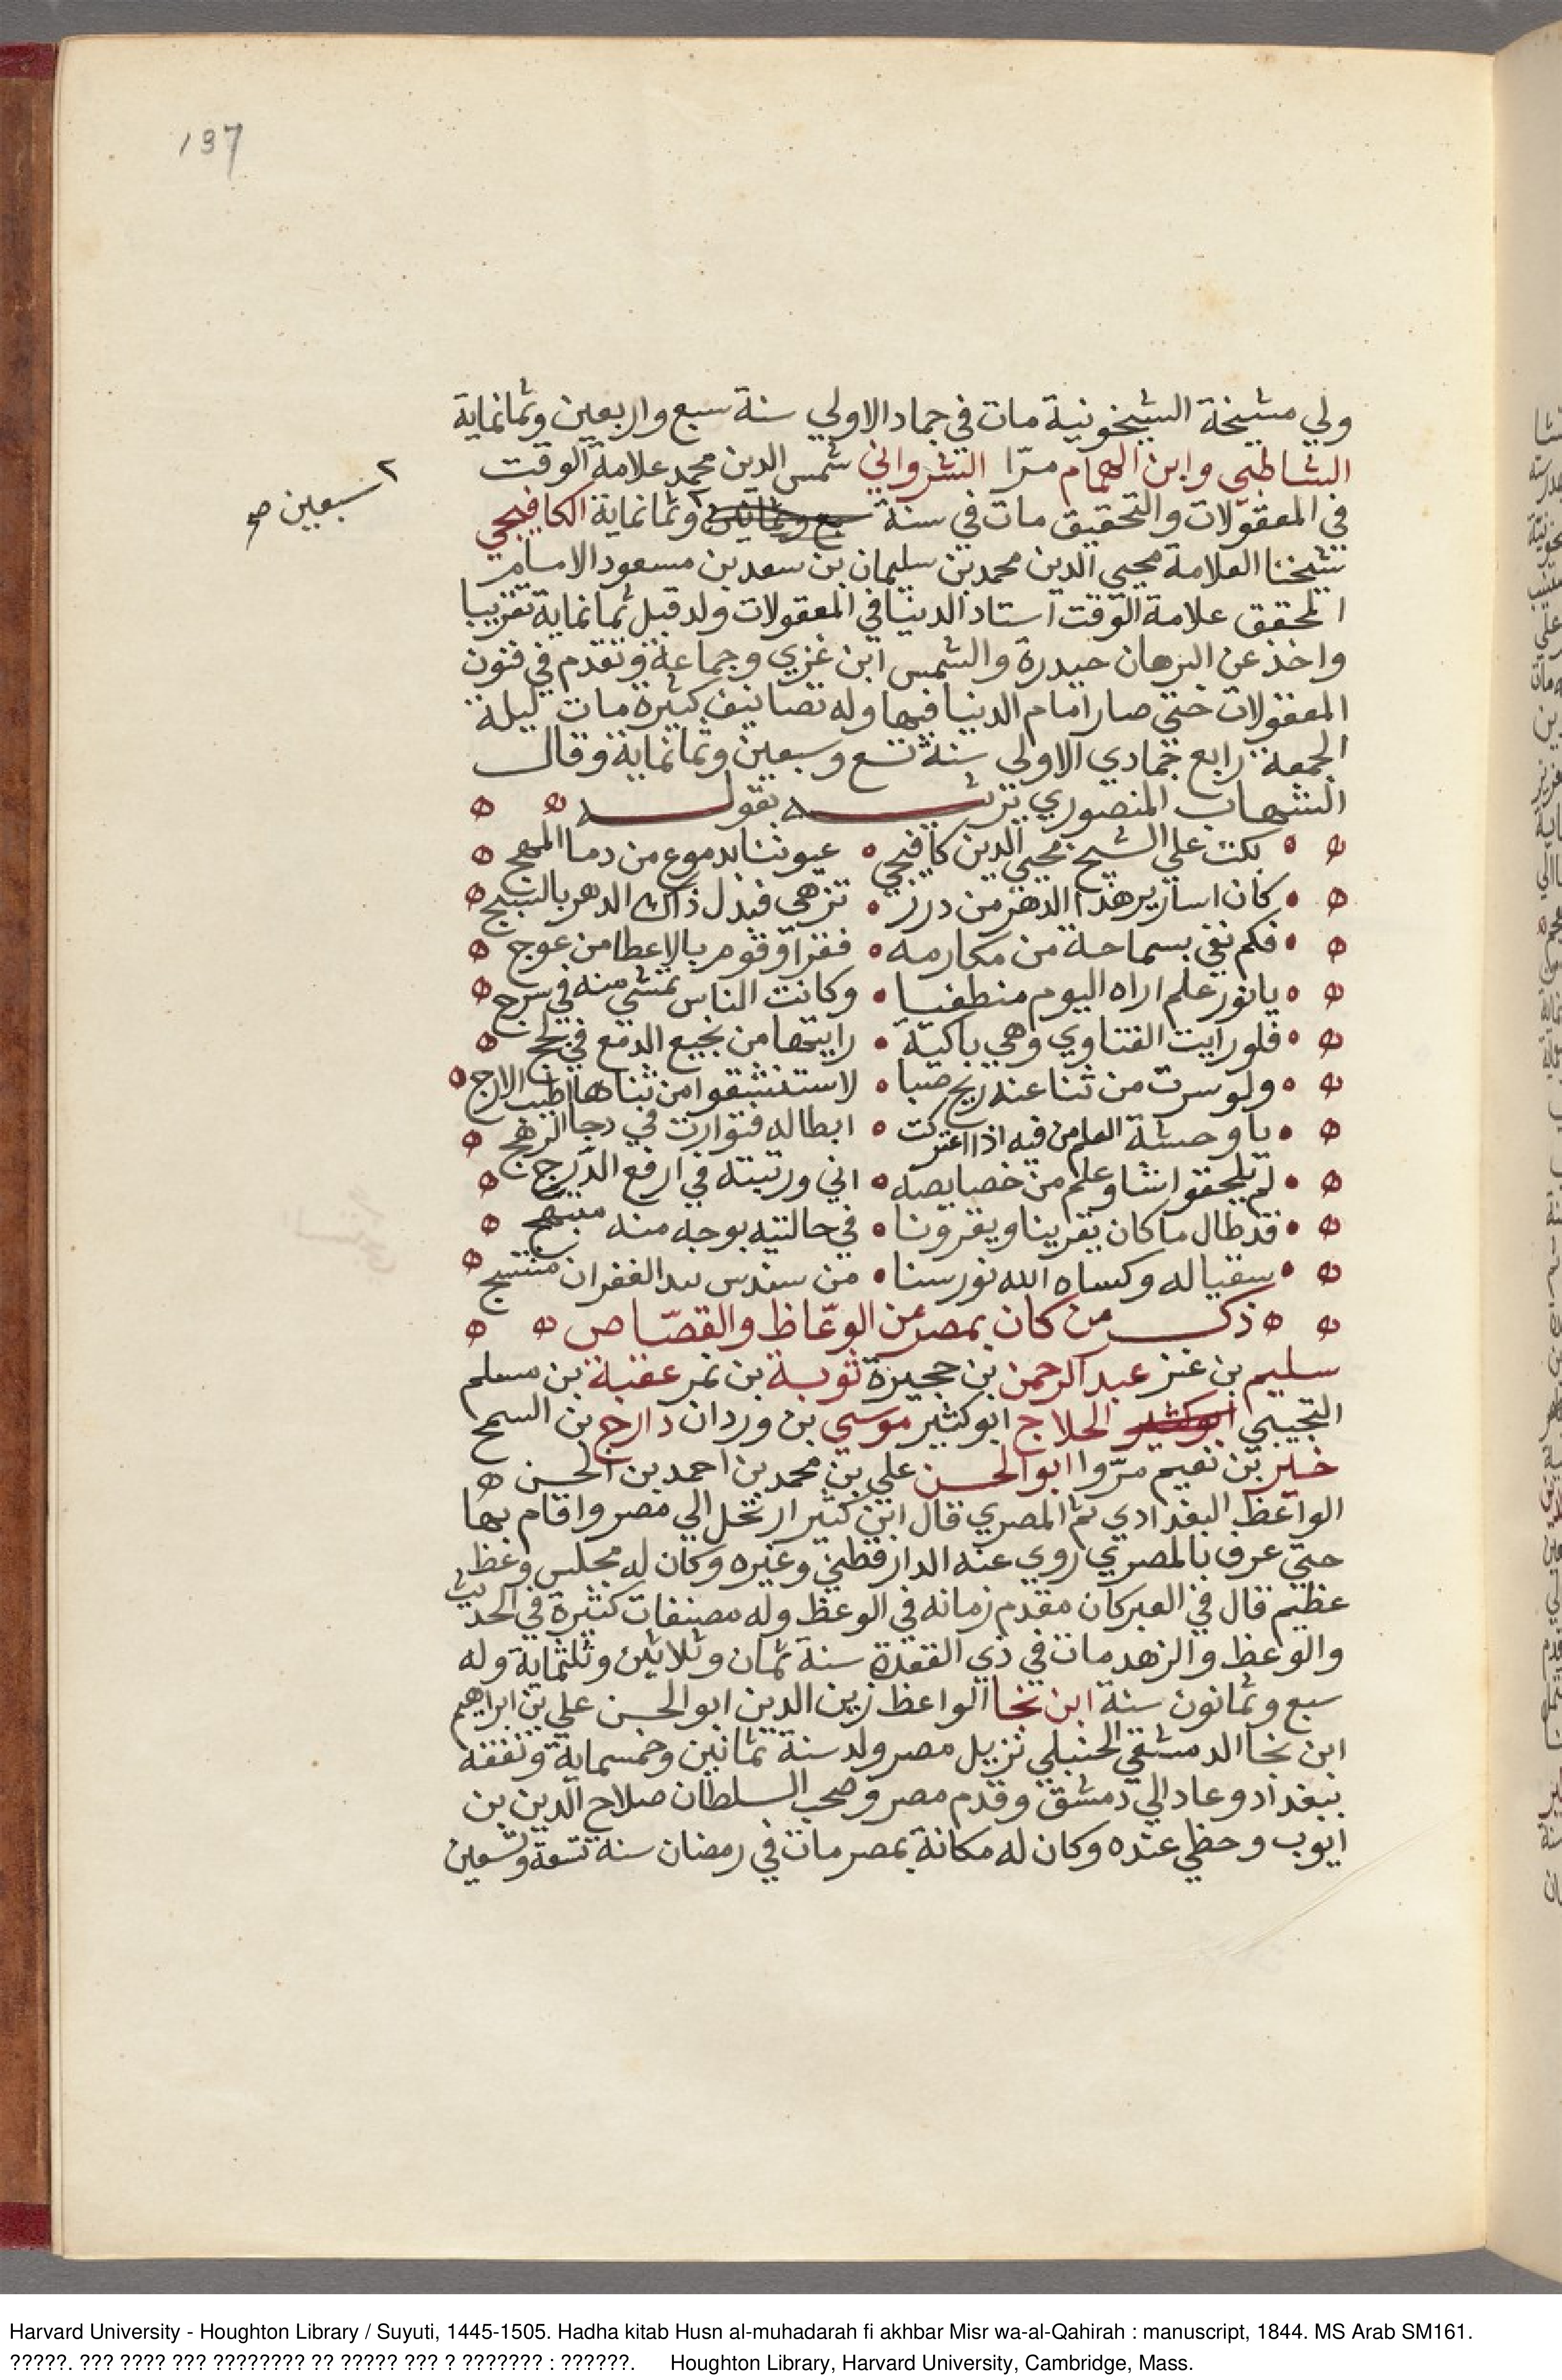 137
ولي مشيخة الشيخونية مات في جماد الاولي سنة سبع واربعين وثمانماية
الشاطبي وابن الهمام مرّا الشرواني شمس الدين محمد علامة الوقت
٢ سبعين صح
في المعقولات والتحقيق مات في سنة وثمانماية الكافيجي
شيخنا العلامة محيي الدين محمد بن سليمان بن سعد بن مسعود الامام
المحقق علامة الوقت استاد الدنيا في المعقولات ولد قبل ثمانماية تقريبا
واخذ عن البرهان حيدرة والشمس ابن غزي وجماعة وتقدم في فنون
المعقولات حتي صار امام الدنيا فيها وله تصانيف كثيرة مات ليلة
الجمعة رابع جمادي الاولي سنة تسع وسبعين وثمانماية وقال
الشهاب المنصوري يرثيه بقوله
بكت علي الشيخ محيي الدين كافيجي عيوننا بدموع من دما المهج
كان اسارير هذا الدهر من درر تزهي فبدل ذاك الدهر بالسبج
فكم نفي بسماحة من مكارمه فقرا وقوم بالاعطا من عوج
يا نور علم اراه اليوم منطفيا وكانت الناس تمشي منه في سرج
فلو رايت الفتاوي وهي باكية رايتها من نجيع الدمع في لجج
ولو سرت من ثنا عنه ريح صبا لاستنشقوا من ثناها طيب الارج
يا وحشة العلم من فيه اذا اعتركت ابطاله فتوارت في دجا الرهج
لم يلحقوا شاو علم من خصايصه اني ورتبته في ارفع الدرج
قد طال ما كان يقرينا ويقرونا في حالتيه بوجه منه مبتهج
سقيا له وكساه الله نور سنا من سندس بيد الغفران منتسج
ذكر من كان بمصر من الوعّاظ والقصّاص
سليم بن عنز عبد الرحمن بن حجيرة توبة بن نمر عقبة بن مسلم
التجيبي ابو كثير الحلاج ابو كثير موسي بن وردان دارج بن السمح
خير بن نعيم مرّوا ابو الحسن علي بن محمد بن احمد بن الحسن ه
الواعظ البغدادي ثم المصري قال ابن كثير ارتحل الي مصر واقام بها
حتي عرف بالمصري روي عنه الدارقطني وغيره وكان له مجلس وعظ
عظيم قال في العبر كان مقدم زمانه في الوعظ وله مصنفات كثيرة في الحديث
والوعظ والزهد مات في ذي القعدة سنة ثمان وثلاثين وثلثماية وله
سبع وثمانون سنة ابن نجا الواعظ زين الدين ابو الحسن علي بن ابراهيم
ابن نجا الدمشقي الحنبلي نزيل مصر ولد سنة ثمانين وخمسماية وتفقه
ببغداد وعاد الي دمشق وقدم مصر وصحب السلطان صلاح الدين بن
ايوب وحظي عنده وكان له مكانة بمصر مات في رمضان سنة تسعة وتسعين
Harvard University - Houghton Library / Suyuti, 1445-1505. Hadha kitab Husn al-muhadarah fi akhbar Misr wa-al-Qahirah : manuscript, 1844. MS Arab SM161.
?????. ??? ???? ??? ???????? ?? ????? ??? ? ??????? : ??????. Houghton Library, Harvard University, Cambridge, Mass.